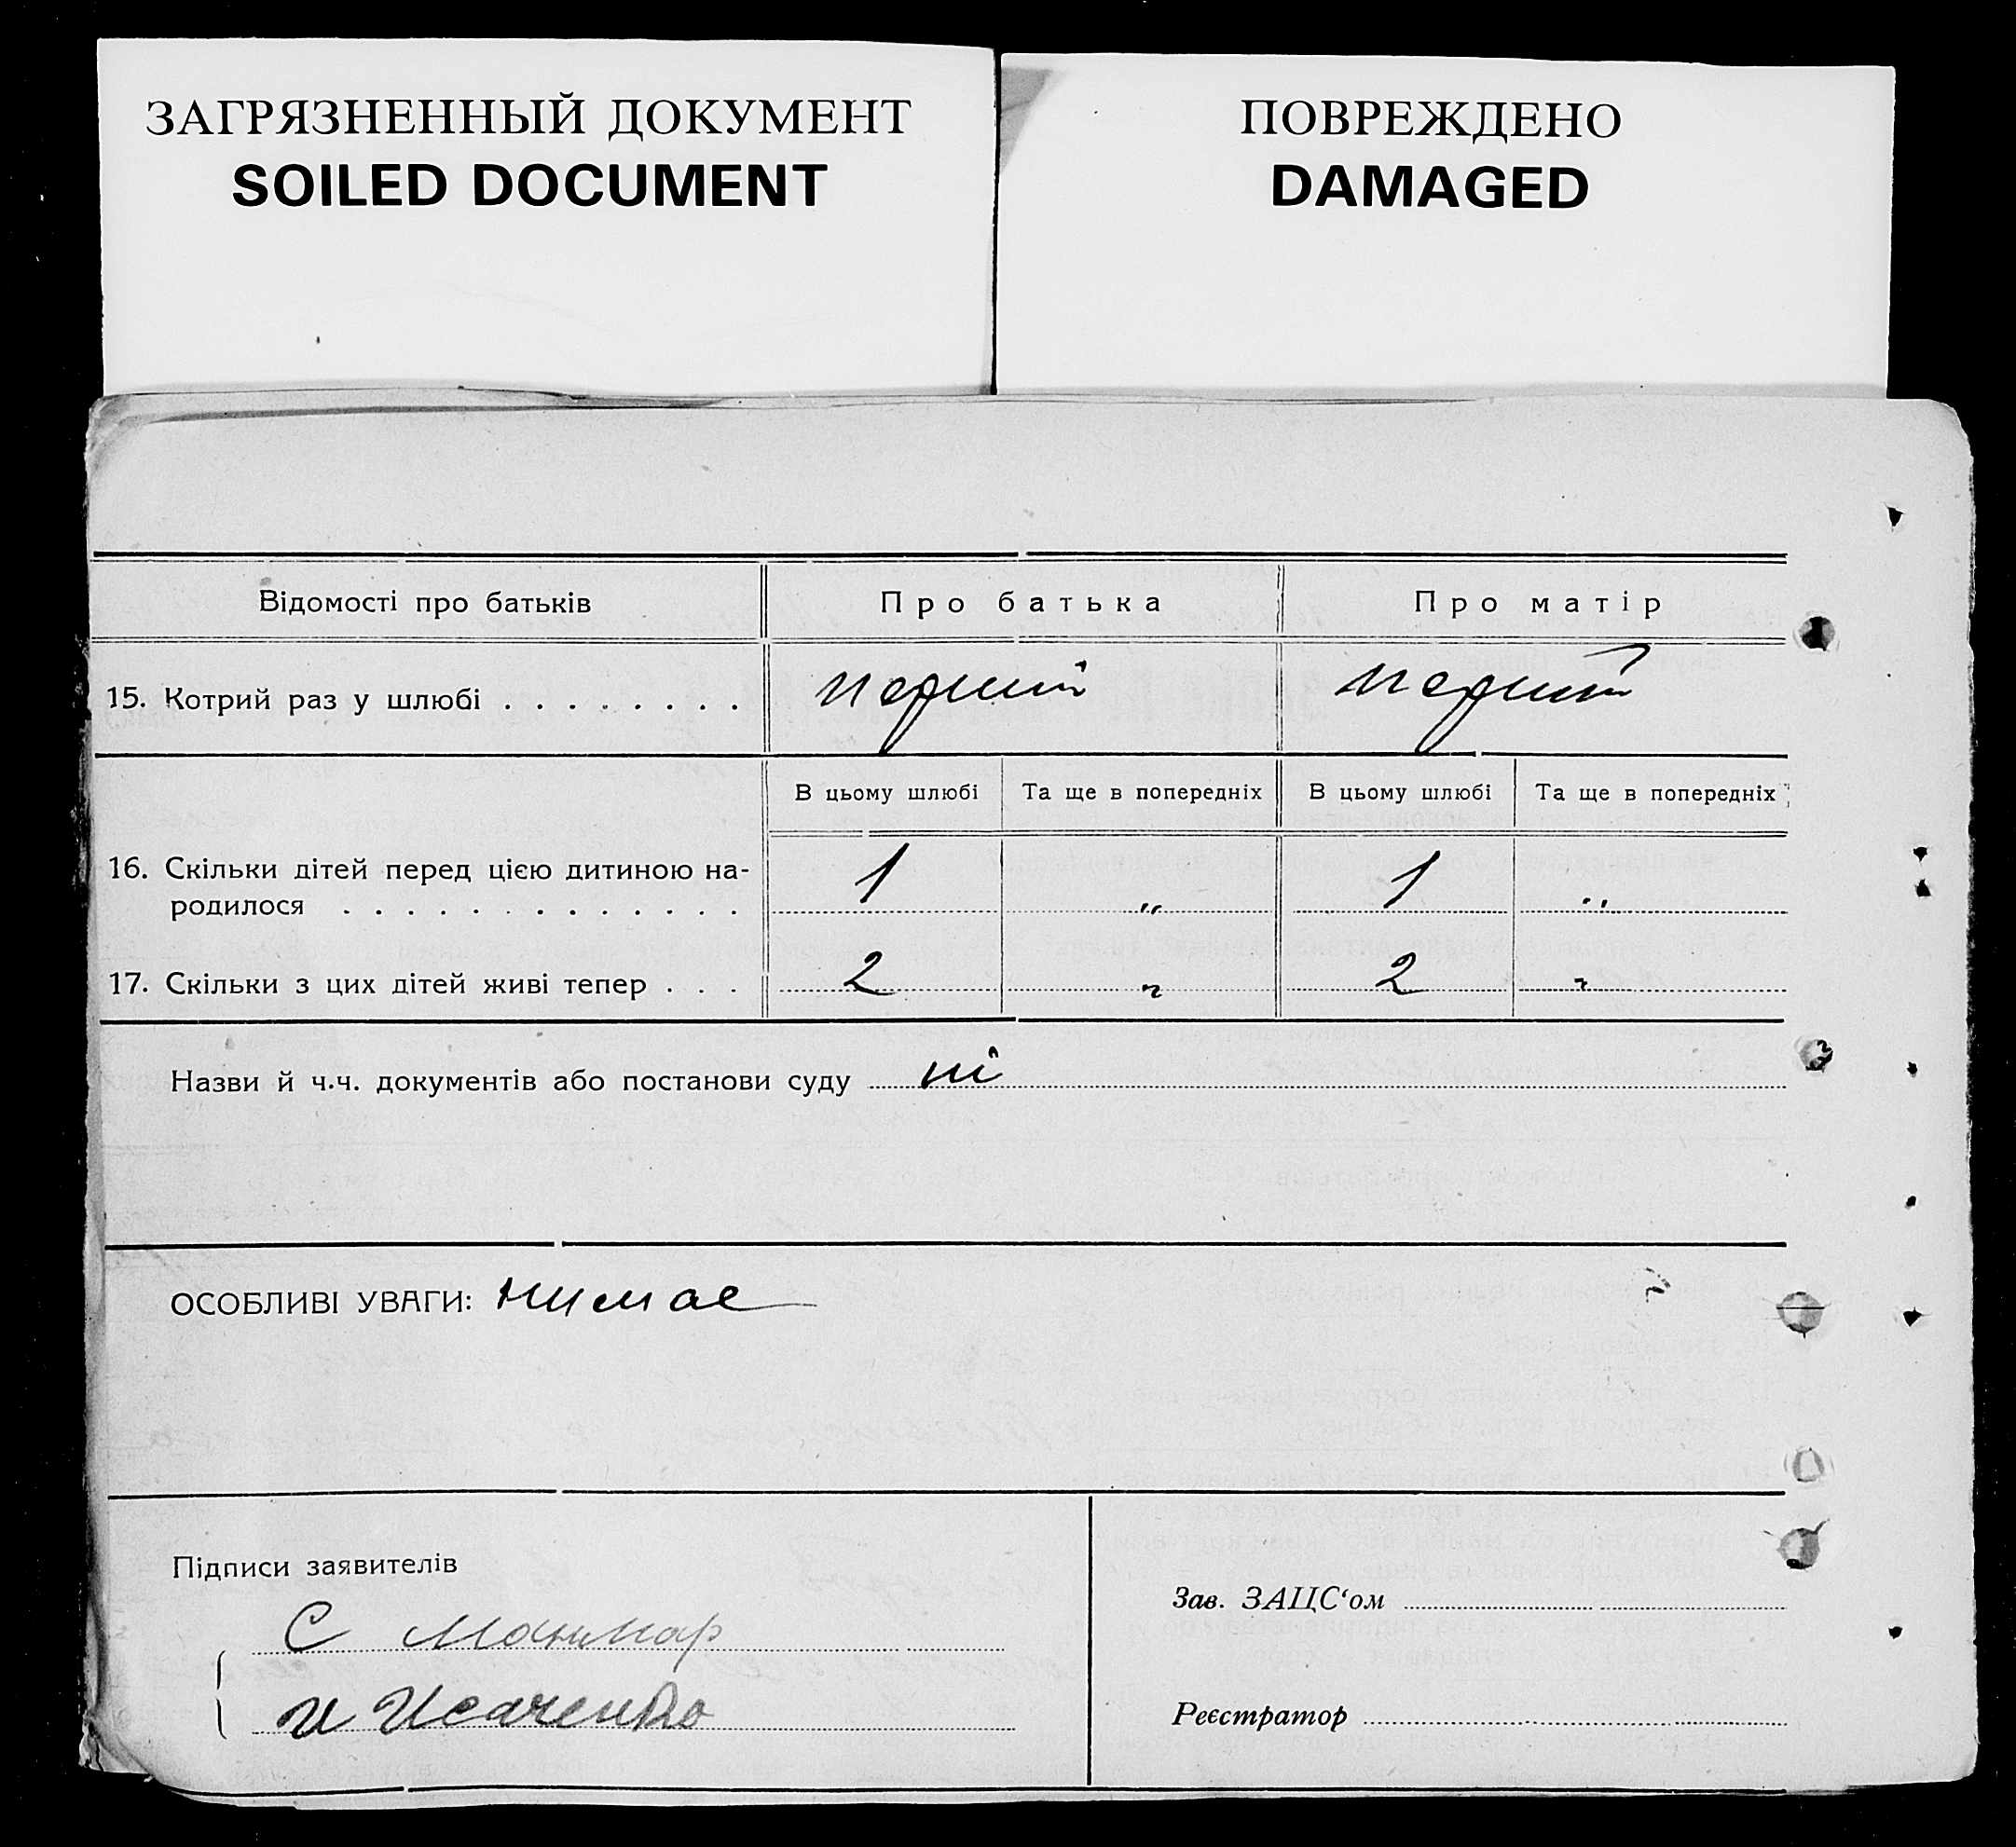 ЗАГРЯЗНЕННЫЙ ДОКУМЕНТ
SOILED DOCUMENT
ПОВРЕЖДЕНО
DAMAGED
Відомості про батьків Про батька Про матір
15. Котрий раз у шлюбі . . . . . . . . перший перший
В цьому шлюбі Та ще в попередніх В цьому шлюбі Та ще в попередніх
16. Скільки дітей перед цією дитиною на-
родилося . . . . . . . . . . . . . 1 „ 1 „
17. Скільки з цих дітей живі тепер . . . 2 „ 2 „
Назви й ч.ч. документів або постанови суду ні
ОСОБЛИВІ УВАГИ: нимае
Підписи заявителів
С
И Исаченко
Зав. ЗАЦС‘ом
Реєстратор